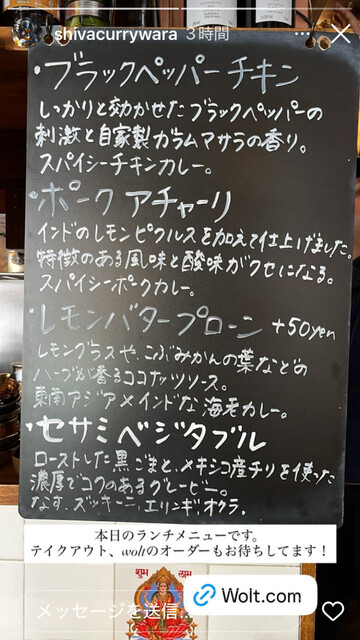 shivacurrywara 3時間
・ブラックペッパーチキン
しっかりと効かせたブラックペッパーの
刺激と自家製ガラムマサラの香り。
スパイシーチキンカレー。
・ポークアチャーリ
インドのレモンピクルスを加えて仕上げました。
特徴のある風味と酸味がクセになる。
スパイシーポークカレー。
・レモンバタープローン +50yen
レモングラスや、こぶみかんの葉などの
ハーブが香るココナッツソース。
東南アジア×インドな海老カレー。
・セサミベジタブル
ローストした黒ごまと、メキシコ産チリを使った
濃厚でコクのあるグレービー。
なす、ズッキーニ、エリンギ、オクラ。
本日のランチメニューです。
テイクアウト、woltのオーダーもお待ちしてます!
शुभ लाभ
Wolt.com
メッセージを送信